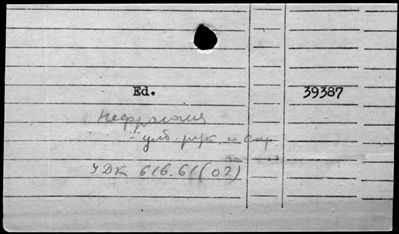 Ed. 39387
Нефрология
- учеб. рук. и спр.
УДК 616.61(02)